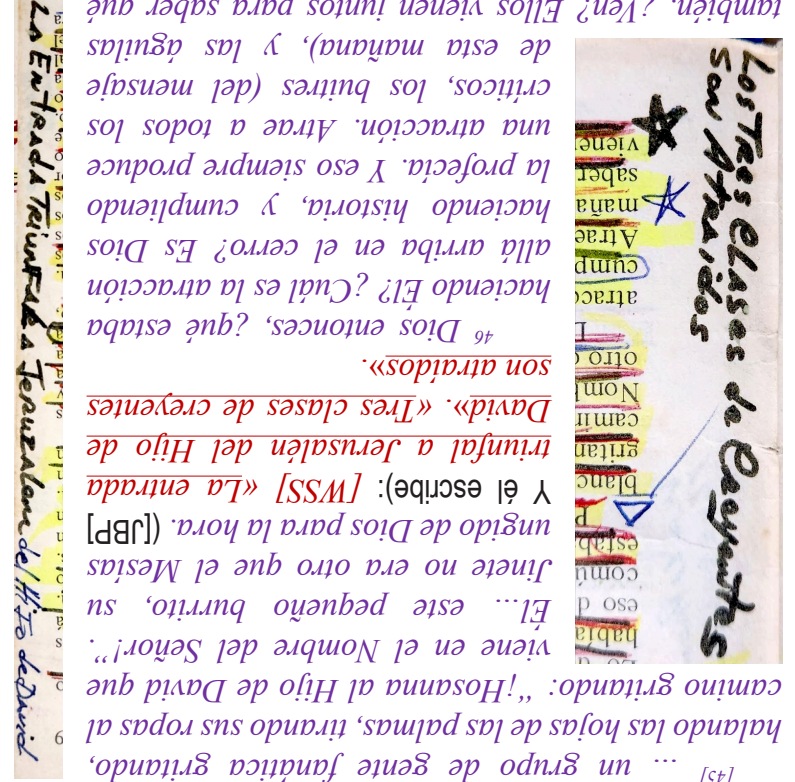 [45] ... un grupo de gente fanática gritando,
halando las hojas de las palmas, tirando sus ropas al
camino gritando: “¡Hosanna al Hijo de David que
viene en el Nombre del Señor!”.
Él... este pequeño burrito, su
Jinete no era otro que el Mesías
ungido de Dios para la hora. ([JBP]
Y él escribe): [WSS] «La entrada
triunfal a Jerusalén del Hijo de
David». «Tres clases de creyentes
son atraídos».
46 Dios entonces, ¿qué estaba
haciendo Él? ¿Cuál es la atracción
allá arriba en el cerro? Es Dios
haciendo historia, y cumpliendo
la profecía. Y eso siempre produce
una atracción. Atrae a todos los
críticos, los buitres (del mensaje
de esta mañana), y las águilas
también. ¿Ven? Ellos vienen juntos para saber qué
habían
eso d
común
estab
blanc
gritan
camin
Nomb
otro
atracc
cump
Atrae
maña
saber
viene
Los Tres Clases de Creyentes
son Atraídos
La Entrada Triunfal a Jerusalem del Hijo de David